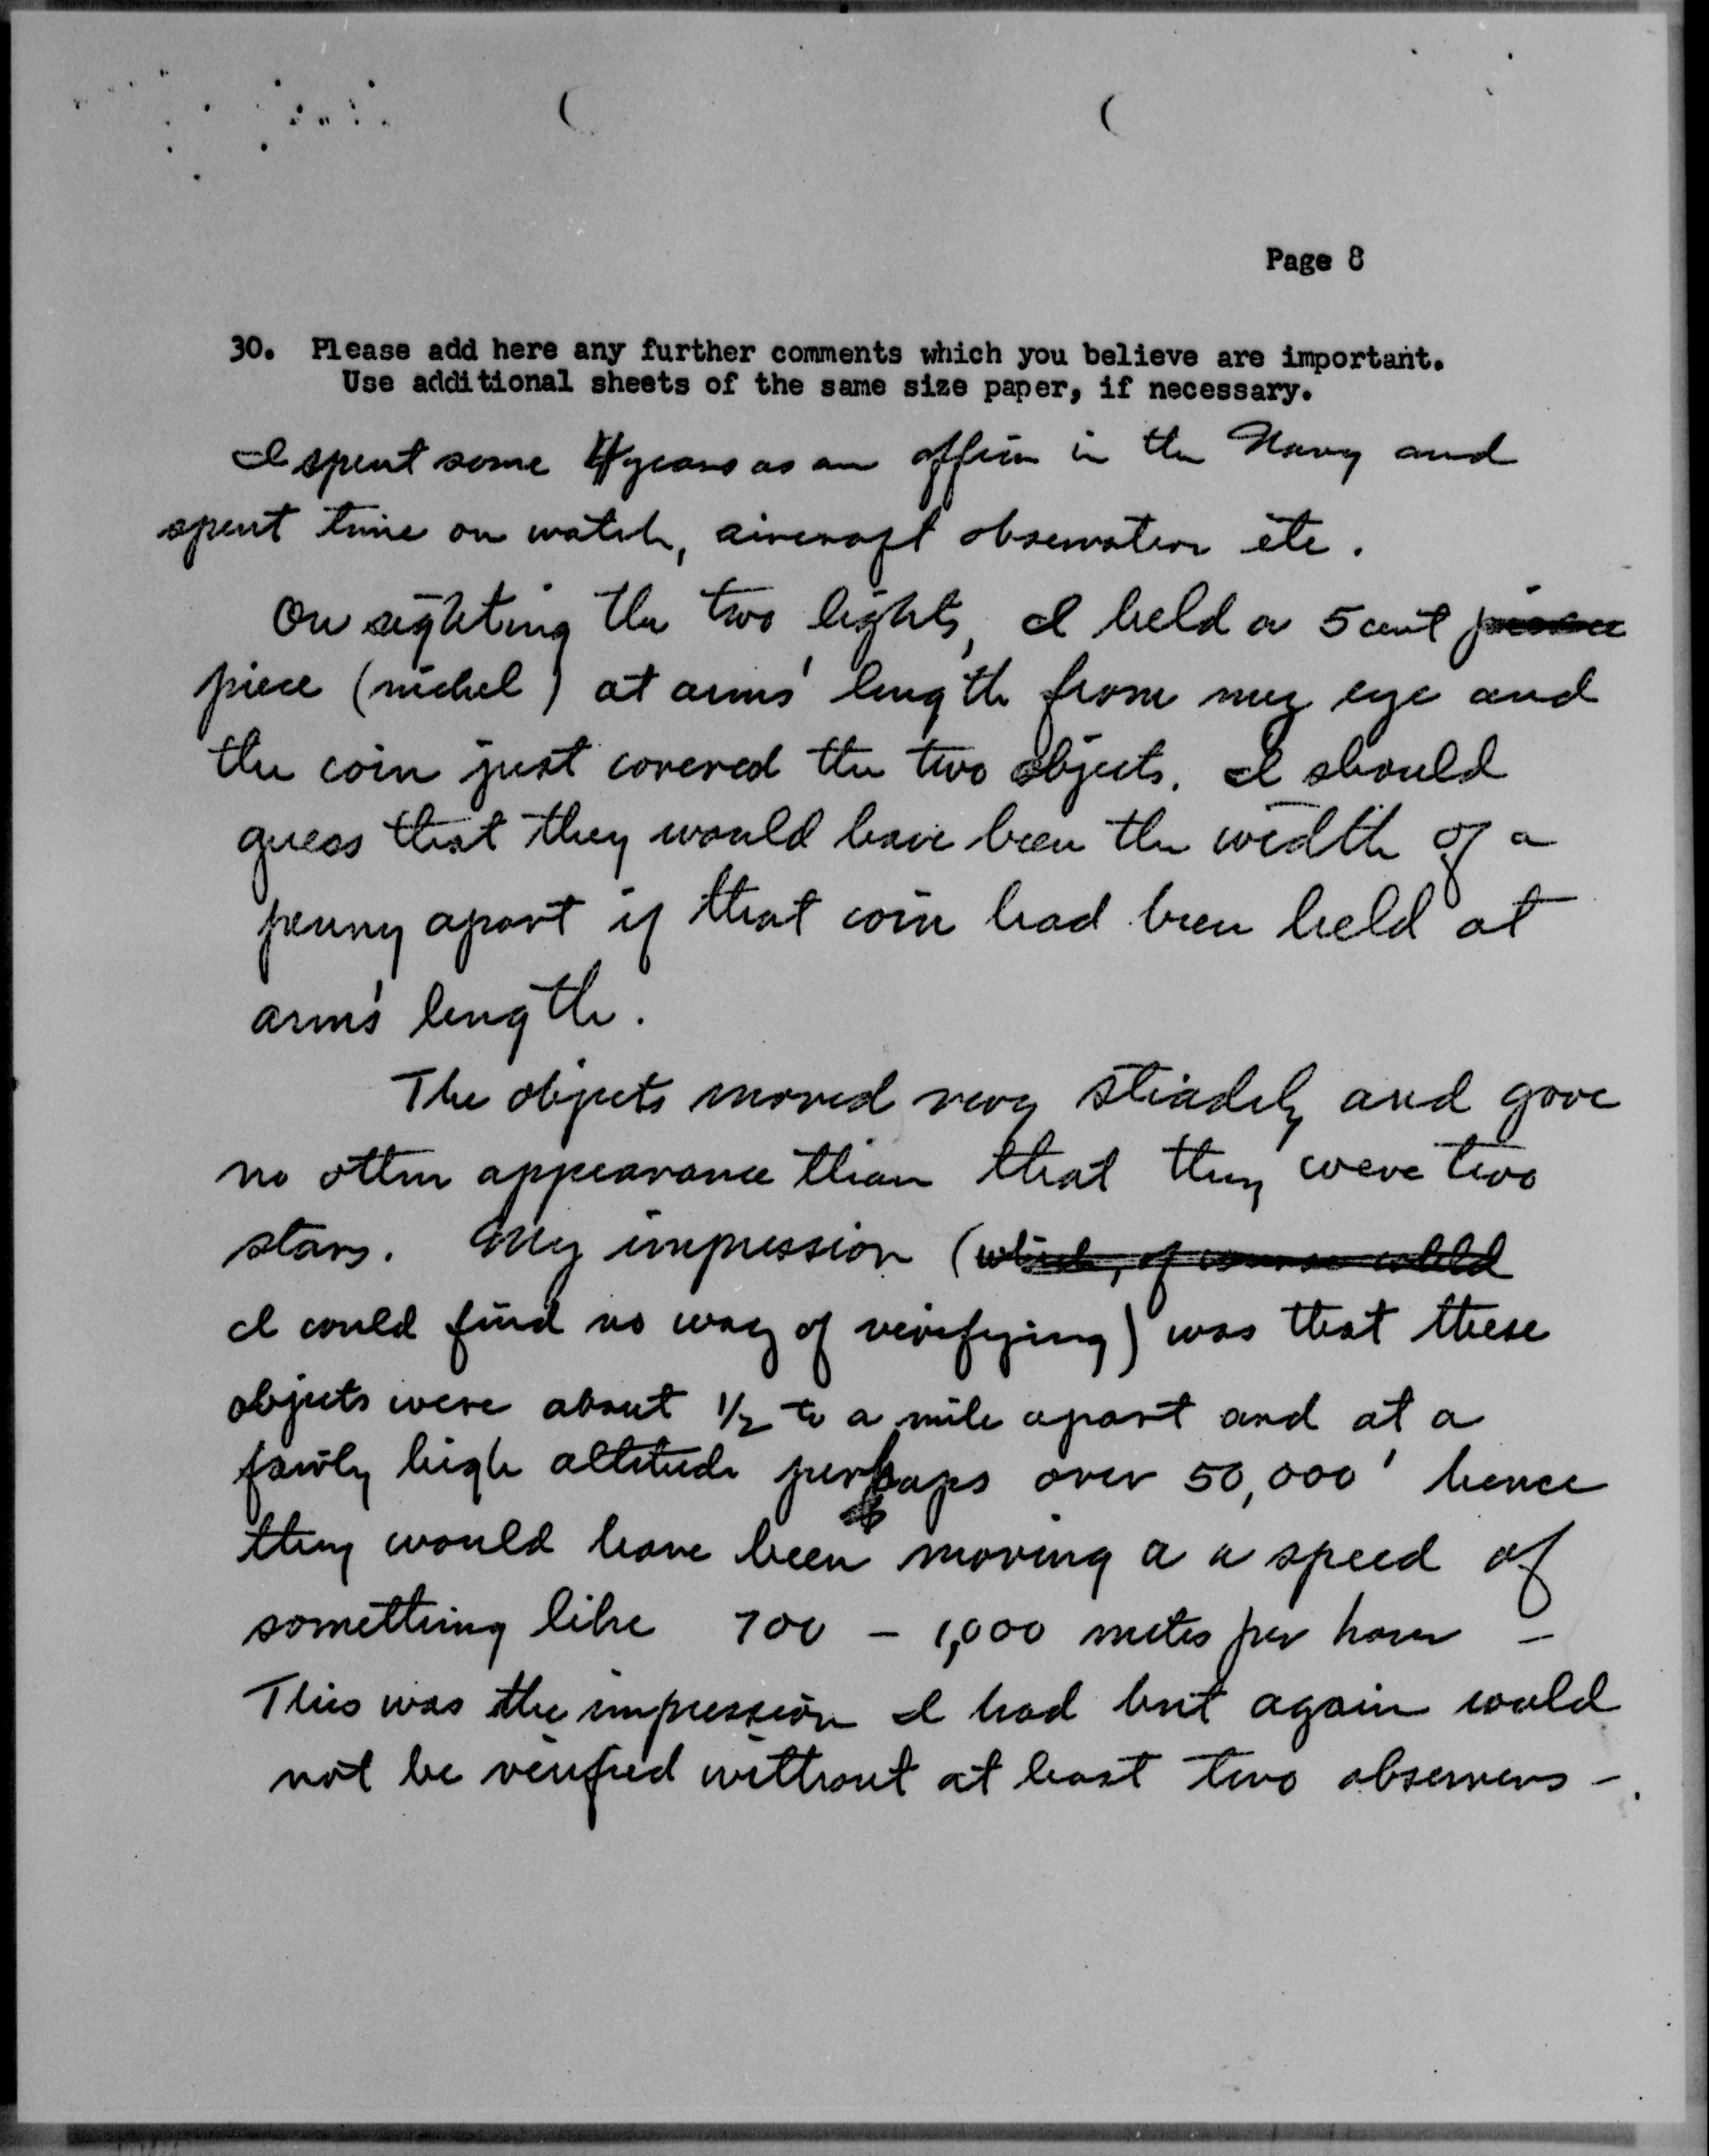 Page 8
30. Please add here any further comments which you believe are important.
Use additional sheets of the same size paper, if necessary.
I spent some 4 years as an officer in the Navy and
spent time on watch, aircraft observation etc.
On sighting the two lights, I held a 5 cent
piece (nickel) at arms' length from my eye and
the coin just covered the two objects. I should
guess that they would have been the width of a
penny apart if that coin had been held at
arm's length.
The objects moved very steadily and gave
no other appearance than that they were two
stars. My impression (which, of course could
I could find no way of verifying) was that these
objects were about 1/2 to a mile apart and at a
fairly high altitude perhaps over 50,000' hence
they would have been moving a a speed of
something like 700 - 1,000 miles per hour -
This was the impression I had but again could
not be verified without at least two observers -.